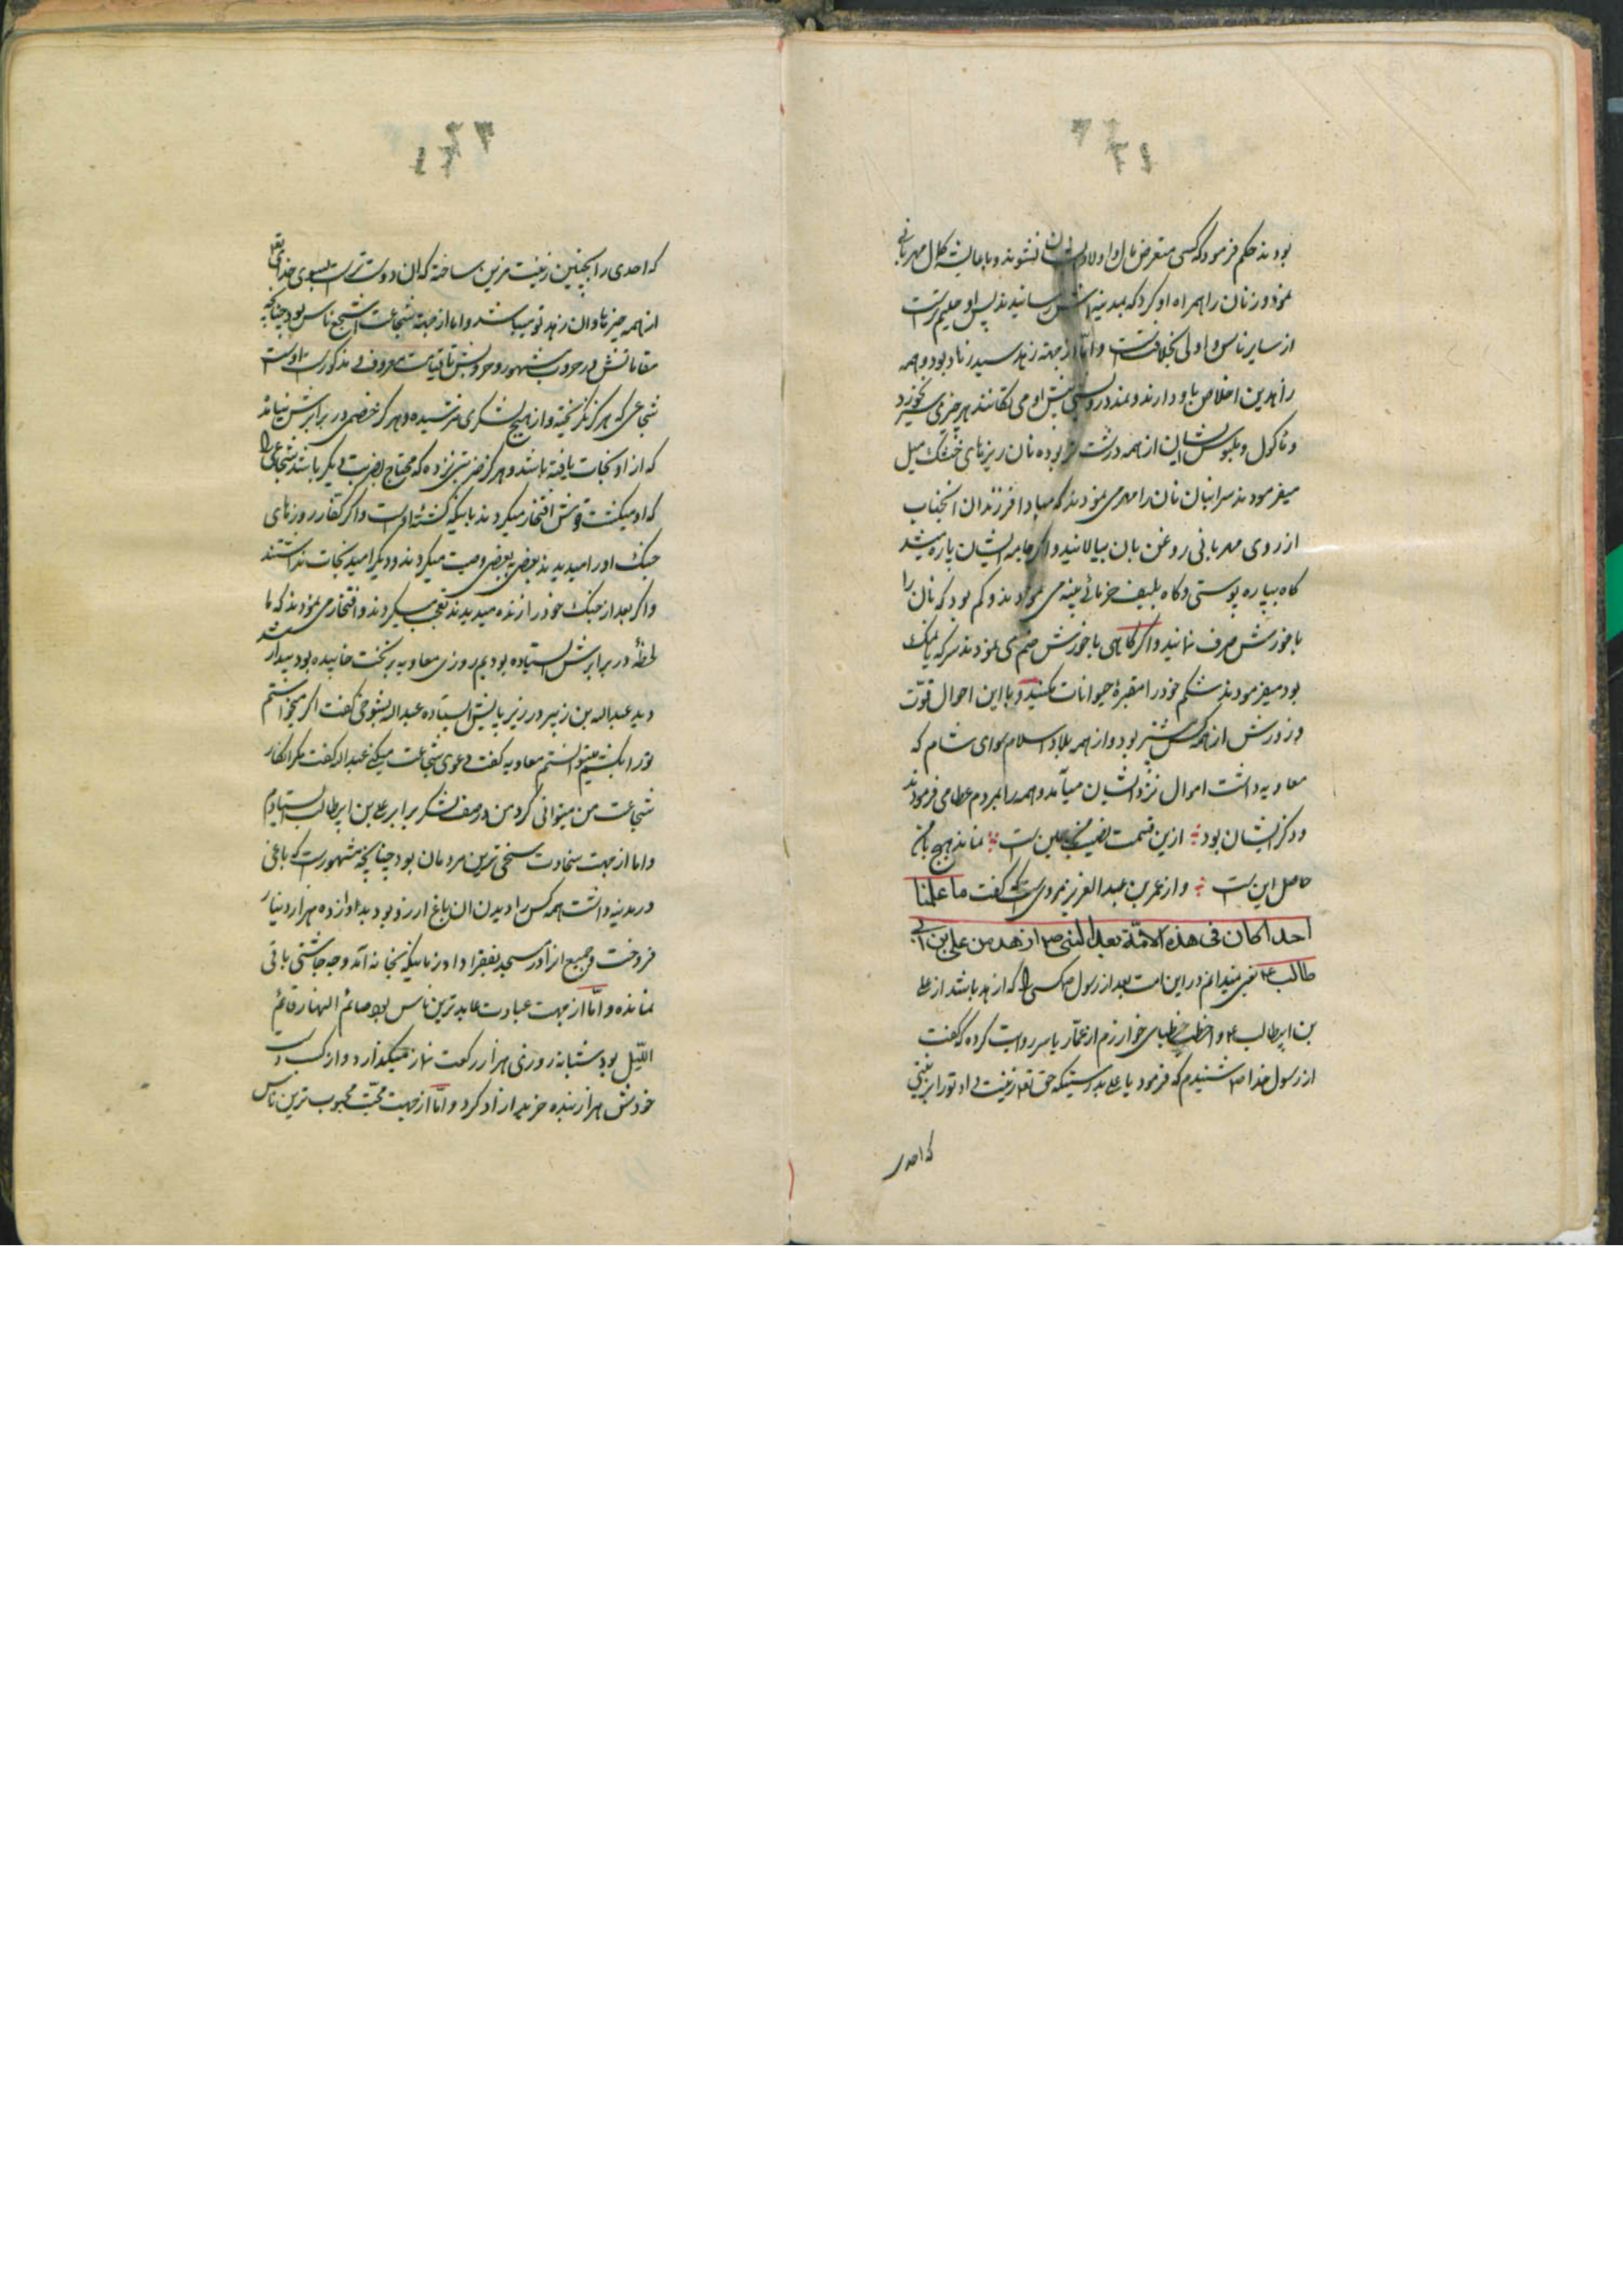 بودند حکم فرمود که کسی متعرض مال و اولاد ایشان نشوند و با عایشه کمال مهربانی
نمود و زنان را همراه او کرد که بمدینه اش رسانیدند پس او حلیم تر است
از سایر ناس و اولی بخلافتست و امّا از جهة زهد سید زهاد بود و همه
زاهدین اخلاص باو دارند و نمد درویشی پیش او می تکانند هرگز سیر نخورد
و ماکول و ملبوس ایشان از همه درشت تر بوده نان ریزهای خشک میل
میفرمودند سر انبان نان را مهر می نمودند که مبادا فرزندان آنجناب
از روی مهربانی روغن بان بیالانید و اگر جامه ایشان پاره میشد
کاه بپاره پوستی و کاه بلیف خرمائی پینه می نمودند و کم بود که نان را
با خورش صرف نمانید و اگر کاهی با خورش ضم می نمودند سرکه یا نمک
بود میفرمودند شکم خود را مقبرهٔ حیوانات مکنید و با این احوال قوّت
و زورش از همه کس بیشتر بود و از همه بلاد اسلام سوای شام که
معاویه داشت اموال نزد ایشان میآمد و همه را بمردم عطا می فرمودند
و ذکر ایشان بود از این قسمت نصیب
حاصل این است و از عمر بن عبد العزیز مرویست که گفت ما علمنا
احدا کان فی هذه الامّة بعد النبی ص ازهد من علی بن ابی
طالب ع یعنی نمیدانم در این امت بعد از رسول ص کسی را که ازهد باشد از علی
بن ابیطالب ع و اخطب خطبای خوارزم از عمّار یاسر روایت کرده که گفت
از رسول خدا ص شنیدم که فرمود یا علی بدرستیکه حق تعالی زینت داد تو را بزینتی
که احدی
که احدی را بچنین زینت مزین ساخته که ان دوست تر است بسوی خدایتعالی
از همه چیزها و ان زهد تو میباشد و اما از جهة شجاعت اشجع ناس بود چنانچه
مقاماتش در حروب مشهور و حروبش تا قیامت معروف و مذکور است اوست
شجاعی که هرگز نگریخته و از هیچ لشکری نترسیده و هرگز خصمی در برابرش نیامد
که از او نجات یافته باشد و هرگز ضربتی نزده که محتاج بضربت دیگر باشد شجاعی را
که او میکشت قومش افتخار میکردند باینکه کشتهٔ اوست و اگر کفار روزهای
جنک او را میدیدند بعضی به بعضی وصیت میکردند و دیگر امید نجات نداشتند
و اگر بعد از جنک خود را زنده میدیدند تعجب میکردند و افتخار می نمودند که ما
لحظهٔ در برابرش ایستاده بودیم روزی معاویه بر تخت خوابیده بود بیدار شد
دید عبدالله بن زبیر در زیر پایش ایستاده عبدالله بشوخی گفت اگر میخواستم
تو را بکشم میتوانستم معاویه گفت دعوی شجاعت میکنی عبدالله گفت مگر انکار
شجاعت من میتوانی کرد من در صف لشکر برابر علی بن ابیطالب ایستادم
و اما از جهت سخاوت سخی ترین مردمان بود چنانچه مشهور است که باغی
در مدینه داشت همه کس را دیدن ان باغ ارزو بود بدوازده هزار دینار
فروخت و جمیع انرا در مسجد بفقرا داد زمانیکه بخانه آمد وجه چاشتی باقی
نمانده و امّا از جهت عبادت عابد ترین ناس بود صائم النهار قائم
اللّیل بود شبانه روزی هزار رکعت نماز میگذارد و از کسب دست
خودش هزار بنده خرید ازاد کرد و امّا از جهت محبّت محبوب ترین ناس